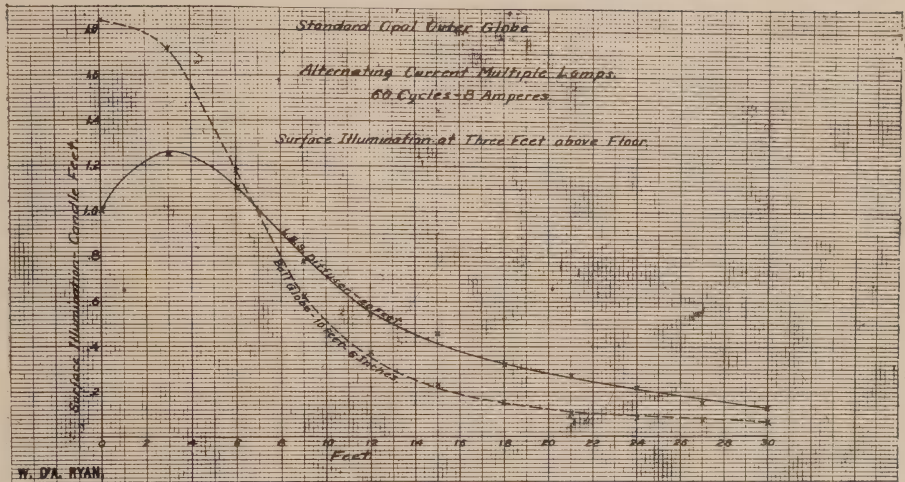 Standard Opal Outer Globe
Alternating Current Multiple Lamps.
60 Cycles-8 Amperes.
Surface Illumination at Three Feet above Floor.
Surface Illumination- Candle Feet.
1.8
1.6
1.4
1.2
1.0
.8
.6
.4
.2
Diffuser
Ball Globe-10 Feet-6 Inches.
0 2 4 6 8 10 12 14 16 18 20 22 24 26 28 30
Feet
W. D'A. RYAN